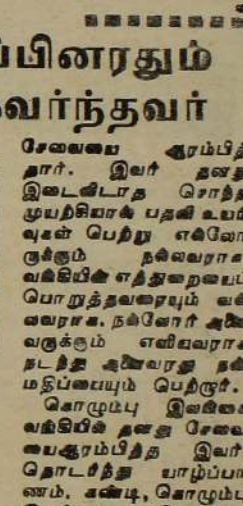 ப்பினரதும்
கவர்ந்தவர்
சேவையை ஆரம்பித்
தார். இவர் தனது
இடைவிடாத சொந்த
முயற்சியால் பதவி உயர்
வுகள் பெற்று எல்லோ
ருக்கும் நல்லவராக
வங்கியின் எத்துறையைப்
பொறுத்தவரையும் வல்
லவராக. நல்லோர் அனை
வருக்கும் எளியவராக
நடந்து அனைவரது நன்
மதிப்பையும் பெற்றார்.
கொழும்பு இலங்கை
வங்கியில் தனது சேவை
யைஆரம்பித்த இவர்
தொடர்ந்து யாழ்ப்பா
ணம், கண்டி, கொழும்பு